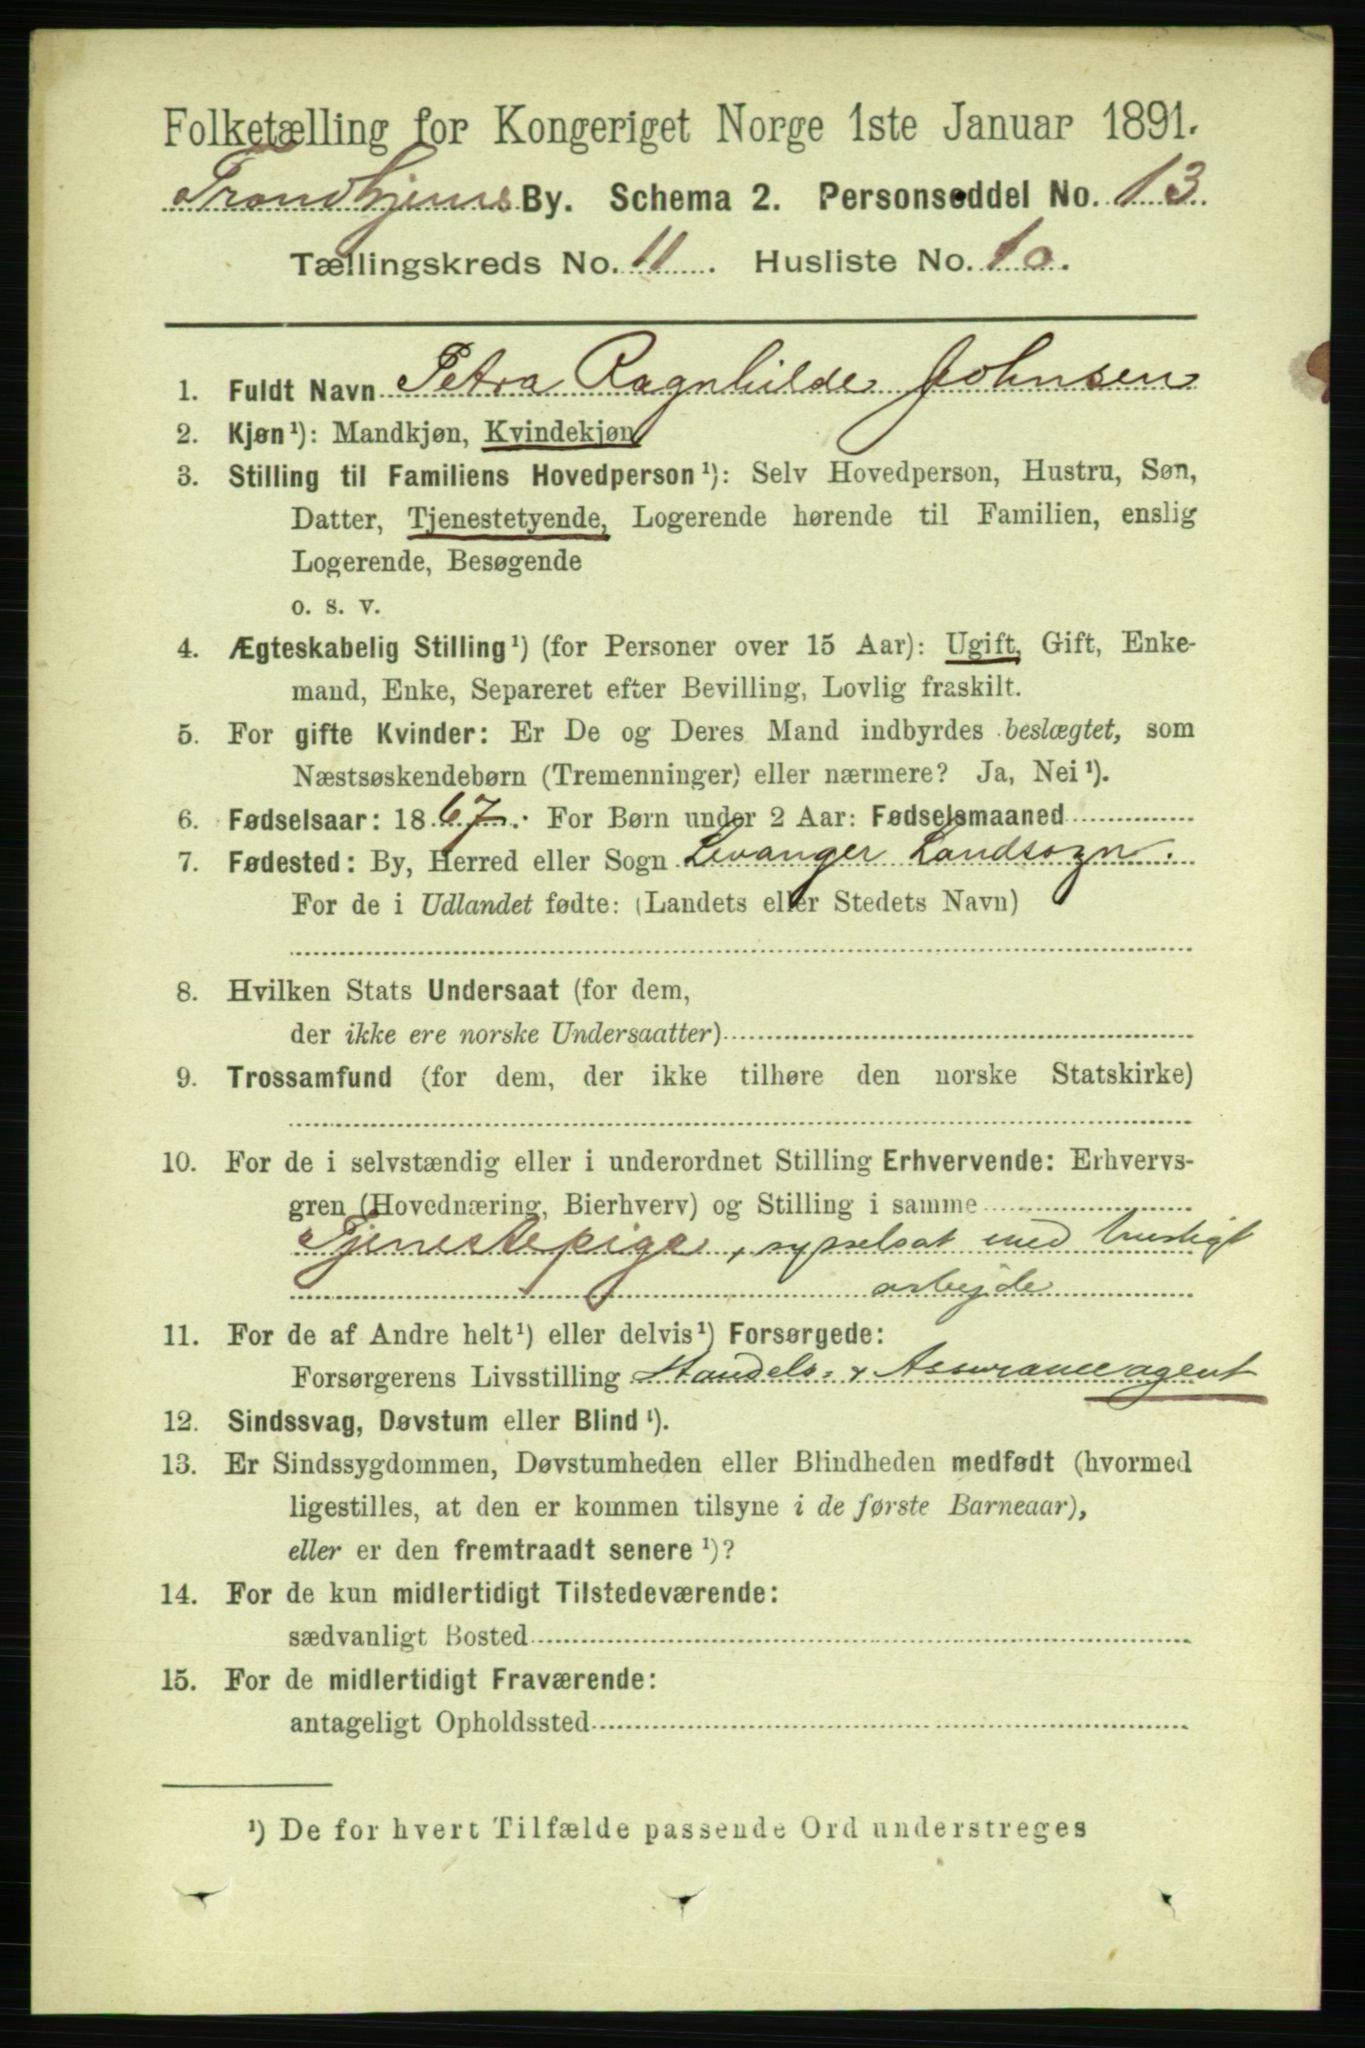 Folketælling for Kongeriget Norge 1ste Januar 1891.
Trondhjems By. Schema 2. Personseddel No. 13
Tællingskreds No. 11. Husliste No. 10.
1. Fuldt Navn Petra Ragnhilde Johnsen
2. Kjøn¹): Mandkjøn, Kvindekjøn
3. Stilling til Familiens Hovedperson¹): Selv Hovedperson, Hustru, Søn,
Datter, Tjenestetyende, Logerende hørende til Familien, enslig
Logerende, Besøgende
o. s. v.
4. Ægteskabelig Stilling¹) (for Personer over 15 Aar): Ugift, Gift, Enke-
mand, Enke, Separeret efter Bevilling, Lovlig fraskilt.
5. For gifte Kvinder: Er De og Deres Mand indbyrdes beslægtet, som
Næstsøskendebørn (Tremenninger) eller nærmere? Ja, Nei¹).
6. Fødselsaar: 1867. For Børn under 2 Aar: Fødselsmaaned
7. Fødested: By, Herred eller Sogn Levanger Landsogn.
For de i Udlandet fødte: (Landets eller Stedets Navn)
8. Hvilken Stats Undersaat (for dem,
der ikke ere norske Undersaatter)
9. Trossamfund (for dem, der ikke tilhøre den norske Statskirke)
10. For de i selvstændig eller i underordnet Stilling Erhvervende: Erhvervs-
gren (Hovednæring, Bierhverv) og Stilling i samme
Tjenestepige, sysselsat med husligt
arbejde
11. For de af Andre helt¹) eller delvis¹) Forsørgede:
Forsørgerens Livsstilling Handels- & Assuranceagent
12. Sindssvag, Døvstum eller Blind¹).
13. Er Sindssygdommen, Døvstumheden eller Blindheden medfødt (hvormed
ligestilles, at den er kommen tilsyne i de første Barneaar),
eller er den fremtraadt senere¹)?
14. For de kun midlertidigt Tilstedeværende:
sædvanligt Bosted
15. For de midlertidigt Fraværende:
antageligt Opholdssted
¹) De for hvert Tilfælde passende Ord understreges